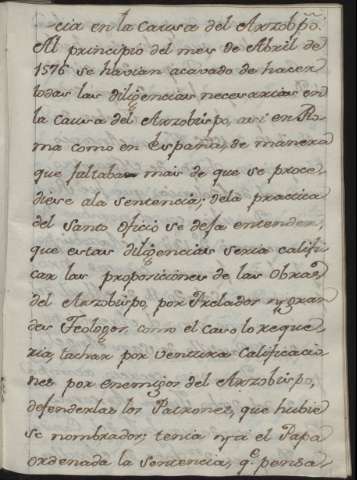 cia en la Causa del Arzobpõ.
Al principio del mes de Abril de
1576 se havian acavado de hacer
todas las diligencias necesarias en
la causa del Arzobispo, asi en Ro
ma como en España, de manera
que faltaba mas de que se proce
diese ala sentencia; dela practica
del Santo Oficio se deja entender,
que estas diligencias seria califi
car las proposiciones de las Obras
del Arzobispo, por Prelados y gran
des Teologos, como el caso lo reque
ria, tachar por ventura Calificacio
nes por enemigos del Arzobispo,
defenderlas los Patrones, que hubie
se nombrador; tenia ya el Papa
ordenada la sentencia, q.e pensa